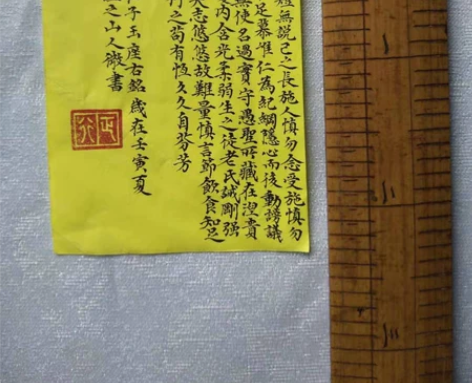 無說己之長施人慎勿念受施慎勿
足慕惟仁為紀綱隱心而後動謗議
無使名過實守愚聖所藏在涅貴
內含光柔弱生之徒老氏誡剛强
志悠悠故難量慎言節飲食知足
行之苟有恆久久自芬芳
子玉座右銘歲在壬寅夏
之山人微書